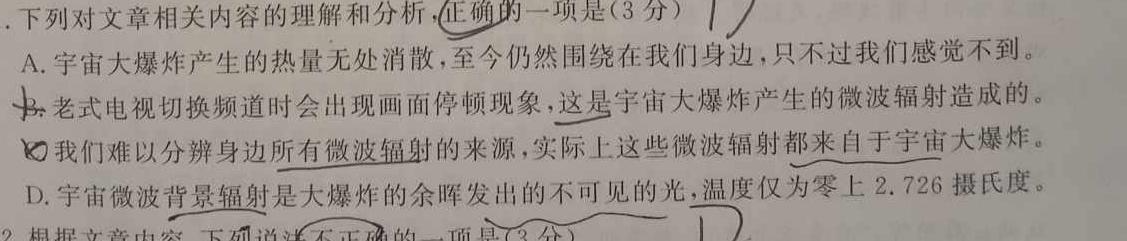 .下列对文章相关内容的理解和分析,正确的一项是(3分) D
A.宇宙大爆炸产生的热量无处消散,至今仍然围绕在我们身边,只不过我们感觉不到。
B.老式电视切换频道时会出现画面停顿现象,这是宇宙大爆炸产生的微波辐射造成的。
我们难以分辨身边所有微波辐射的来源,实际上这些微波辐射都来自于宇宙大爆炸。
D.宇宙微波背景辐射是大爆炸的余晖发出的不可见的光,温度仅为零上2.726摄氏度。
2.根据文章内容,下列说法不正确的一项是(3分) D